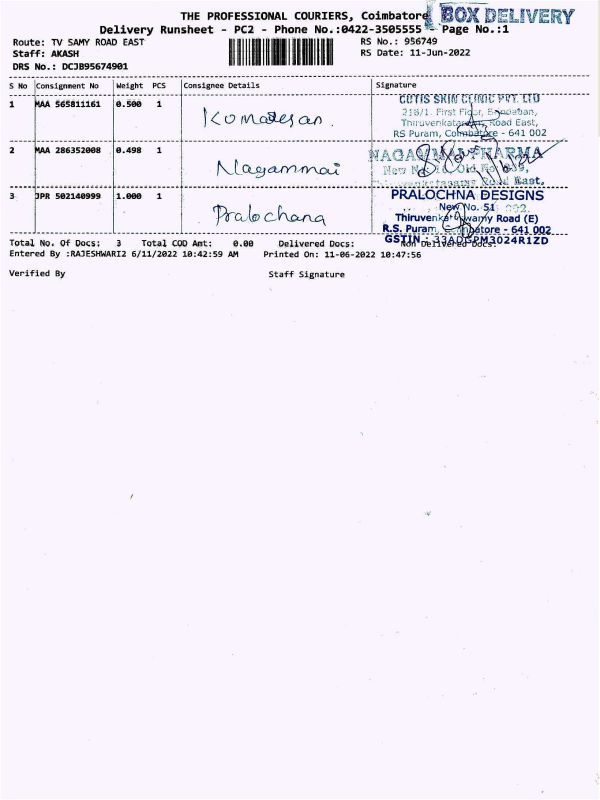 THE PROFESSIONAL COURIERS, Coimbatore
BOX DELIVERY
Delivery Runsheet - PC2 - Phone No.:0422-3505555 Page No.:1
Route: TV SAMY ROAD EAST RS No.: 956749
Staff: AKASH RS Date: 11-Jun-2022
DRS No.: DCJB95674901
S No Consignment No Weight PCS Consignee Details Signature
1 MAA 565811161 0.500 1
CUTIS SKIN CLINIC PVT. LTD
218/1, First Floor,
Thiruvenkata Road East,
RS Puram, Coimbatore - 641 002
2 MAA 286352008 0.498 1 Nagammai
NAGAMMAI PHARMA
New No. Old No.
Road East,
3 JPR 502140999 1.000 1 Pralochana
PRALOCHNA DESIGNS
New No. 51
Thiruvenkataswamy Road (E)
R.S. Puram, Coimbatore - 641 002
GSTIN : 33ADGPM3024R1ZD
Total No. Of Docs: 3 Total COD Amt: 0.00 Delivered Docs: Non Delivered Docs:
Entered By :RAJESHWARI2 6/11/2022 10:42:59 AM Printed On: 11-06-2022 10:47:56
Verified By Staff Signature